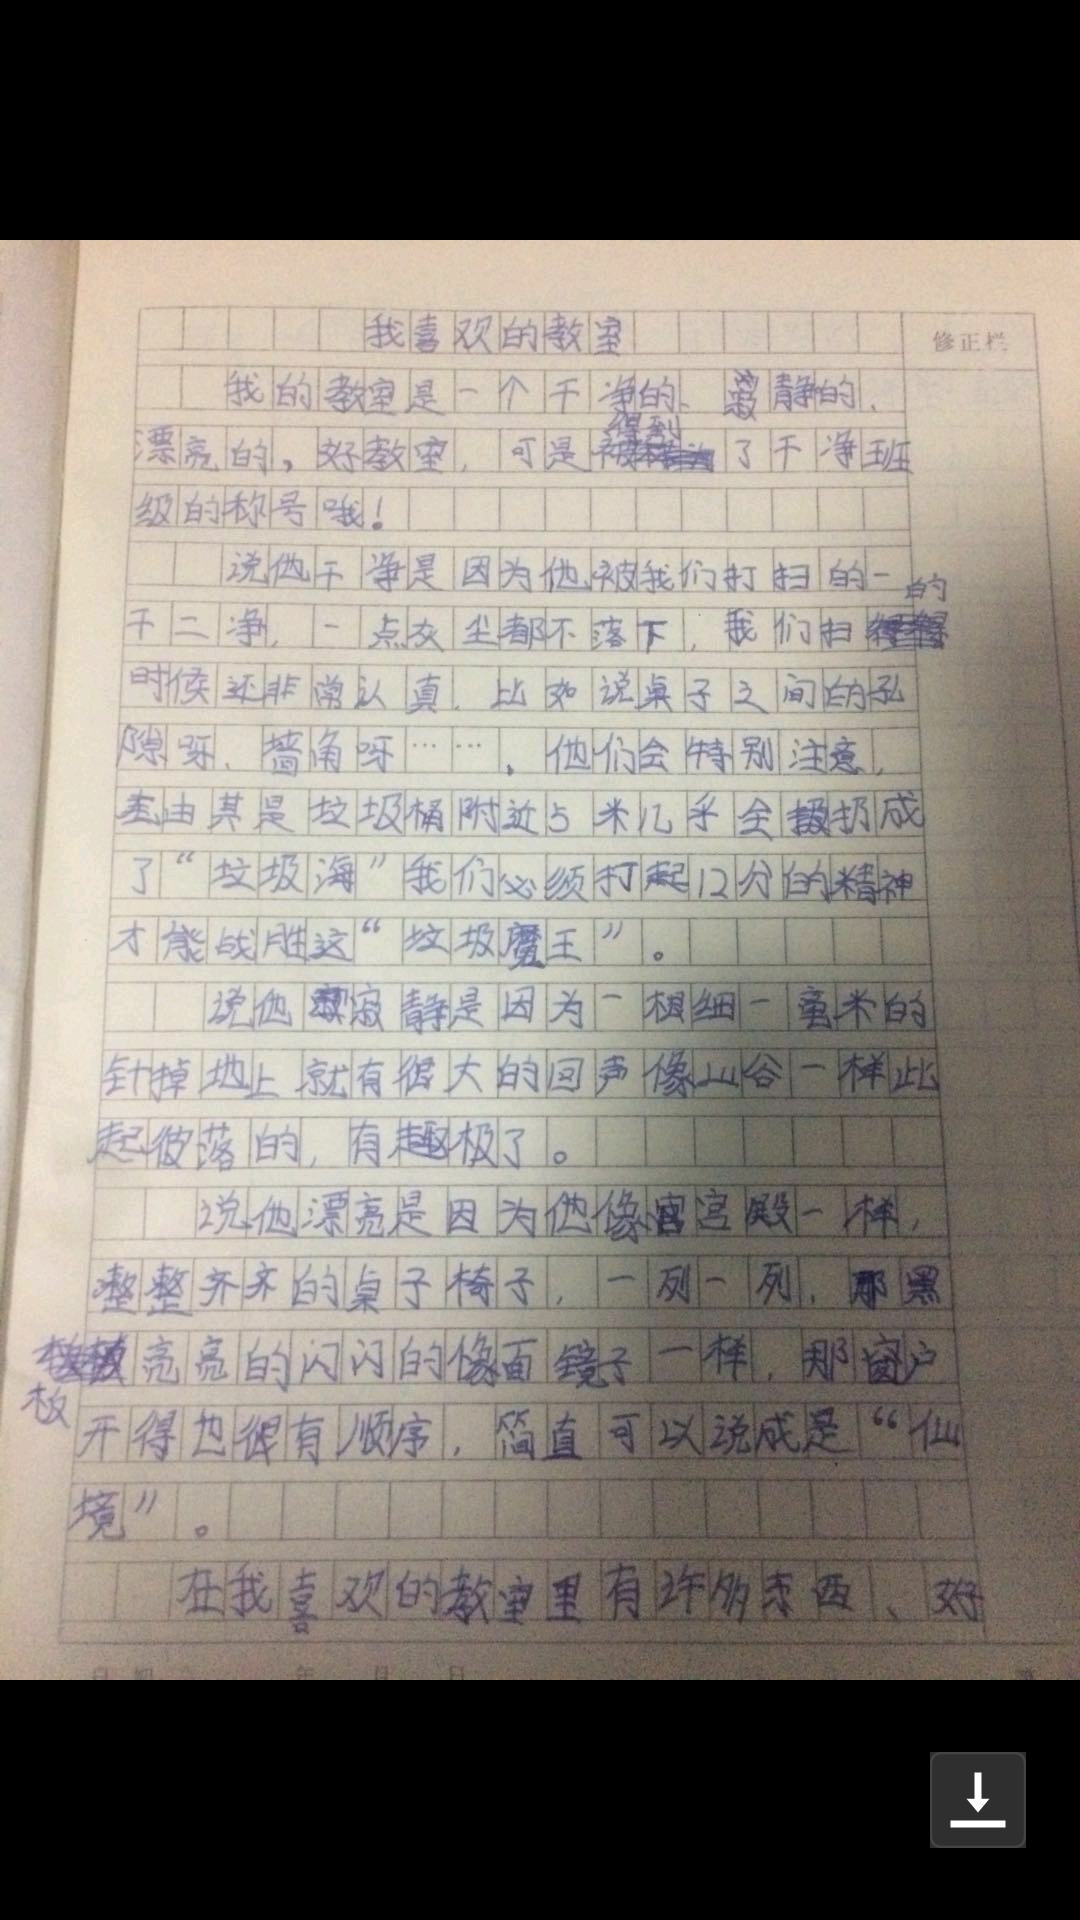 我喜欢的教室
修正栏
我的教室是一个干净的、寂静的、
漂亮的，好教室，可是得到了干净班
级的称号哦！
说他干净是因为他被我们打扫的一
干二净，一点灰尘都不落下，我们扫的
时候还非常认真，比如说桌子之间的孔
隙呀、墙角呀……，他们会特别注意，
由其是垃圾桶附近5米几乎全扔成
了“垃圾海”我们必须打起12分的精神
才能战胜这“垃圾魔王”。
说他寂静是因为一根细一毫米的
针掉地上就有很大的回声像山谷一样此
起彼落的，有趣极了。
说他漂亮是因为他像宫殿一样，
整整齐齐的桌子椅子，一列一列，那黑
板亮亮的闪闪的像面镜子一样，那窗户
开得也很有顺序，简直可以说成是“仙
境”。
在我喜欢的教室里有许多东西、好